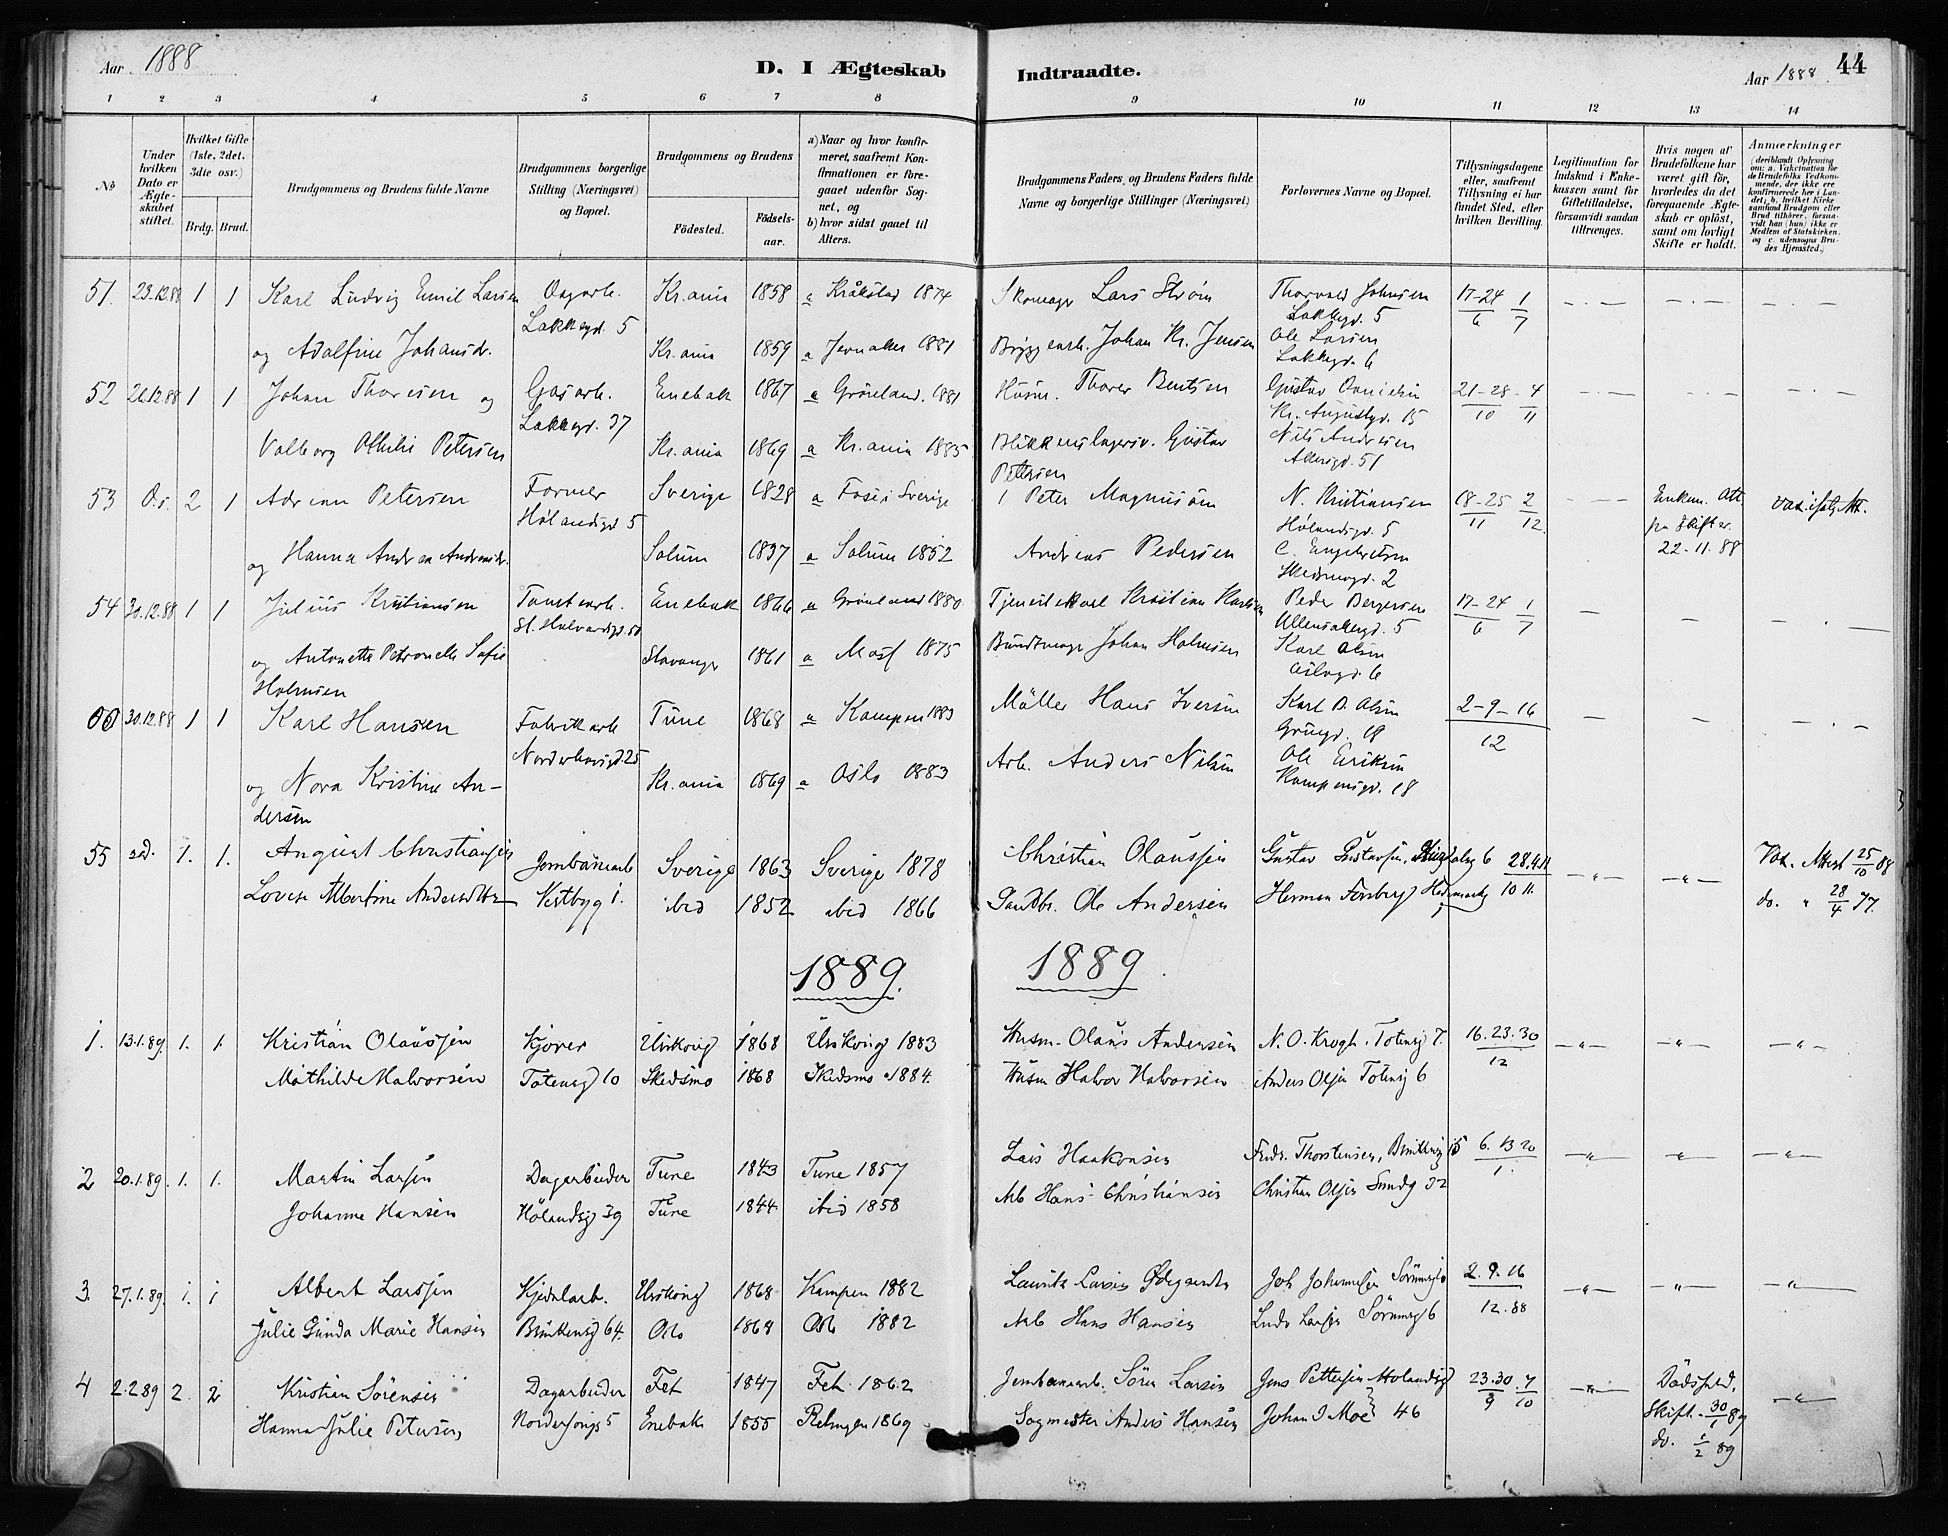 Aar 1888
D. I Ægteskab Indtraadte.
44
Aar 1888
1 2 3 4 5 6 7 8 9 10 11 12 13 14
No
Under hvilken Dato er Ægteskabet stiftet.
Hvilket Gifte (1ste, 2det, 3die osv.)
Brdg. Brud.
Brudgommens og Brudens fulde Navne
Brudgommens borgerlige Stilling (Næringsvei) og Bopæl.
Brudgommens og Brudens
Fødested.
Fødselsaar.
a) Naar og hvor konfirmeret, saafremt Konfirmationen er foregaaet udenfor Sognet, og
b) hvor sidst gaaet til Alters.
Brudgommens Faders, og Brudens Faders fulde Navne og borgerlige Stillinger (Næringsvei)
Forlovernes Navne og Bopæl.
Tillysningsdagene eller, saafremt Tillysning ei har fundet Sted, efter hvilken Bevilling.
Legitimation for Indskud i Enkekassen samt for Giftetilladelse, forsaavidt saadan tiltrænges.
Hvis nogen af Brudefolkene har været gift før, hvorledes da det foregaaende Ægteskab er opløst, samt om lovligt Skifte er holdt.
Anmærkninger
(deriblandt Oplysning om: a. Vakcination for de Brudefolks Vedkommende, der ikke ere konfirmerede her i Landet; b. hvilket Kirkesamfund Brudgom eller Brud tilhører, forsaavidt han (hun) ikke er Medlem af Statskirken, og c. udensogns Brudes Hjemsted.)
51. 23.12.88 1 1 Karl Ludvig Emil Larsen Dagarb. Kr.ania 1858 a Kråkstad 1874 Skomagr Lars Strøm Thorvald Johnsen 17-24/6 1/7
Lakkegd. 5 Lakkegd. 5
og Adolfine Johansdr. Kr.ania 1859 a Jevnaker 1881 Bryggearb. Johan Kr. Jensen Ole Larsen
Lakkegd. 6
52 26.12.88 1 1 Johan Thoresen og Gasarb. Enebak 1867 a Grønland. 1881 Husm. Thorer Bentsen Gustav Danielsen 21-28/10 4/11
Lakkegd. 37 Kr. Augustsgd. 15
Valborg Othilie Petersen Kr.ania 1869 a Kr.ania 1885 Blikkenslagersv. Gustav Nils Andersen
Pettersen Akersgd. 51
53 Ds. 2 1 Adrian Petersen Former Sverige 1828 a Fose i Sverige Peter Magnusson N. Kristiansen 18-25/11 2/12 Enkem. Att. Vac. ifølg Att.
Hølandsgd 5 Hølandsgd. 5 fra Skifter.
og Hanna Andrea Andersdr. Solum 1837 a Solum 1852 Andreas Pedersen C. Engebretsen 22-11.88
Skedsmogd. 2
54 30.12.88 1 1 Julius Kristiansen Tomtearb. Enebak 1866 a Grønland 1880 Tjenestekarl Kristian Karlsen Peder Bergersen 17-24/6 1/7
St. Halvardsgd. 50 Ullensakergd. 5
og Antonette Petronelle Sofie Stavanger 1861 a Moss 1875 Bundtmagr Johan Holmsen Karl Olsen
Holmsen Oslogd. 6
30.12.88 1 1 Karl Hansen Fabrikarb Tune 1868 a Kampen 1883 Møller Hans Iversen Karl D. Olsen 2-9-16/12
Norderhovsgd. 25 Grüngd. 19
og Nora Kristine Andersen Kr.ania 1869 a Oslo 1883 Arb. Anders Nilsen Ole Eriksen
Kampensgd. 18
55 sed. 1. 1. August Christiansen Jernbanearb Sverige 1863 Sverige 1878 Christian Olaussen Gustav Gustavsen, 6 28.4.11/10 11 Vac. Attest 25/10 88
Lovise Albertine Andersdtr Vestbyg 1. ibid 1852 ibid 1866 Sandbr. Ole Andersen Herman Forsberg Hedemarkg do. " 28/4 77.
1889. 1889.
1. 13.1.89. 1. 1. Kristian Olaussen Kjører Urskoug 1868 Urskoug 1883 Husm. Olaus Andersen N. O. Krogh. Totensg 7. 16.23.30/12
Mathilde Halvorsen Totensg 10 Skedsmo 1868 Skedsmo 1884. Husm Halvor Halvorsen Anders Olsen Totensg 6
2 20.1.89. 1. 1. Martin Larsen Dagarbeider Tune 1843 Tune 1857 Lars Haakonsen Fredr. Thorstensen, 6.13.20/1.
Johanne Hansen Hølandsg 39 Tune 1844 ibid 1858 Arb Hans Christiansen Christian Olsen Sundg 32
3. 27.1.89. 1. 1 Albert Larssen Kjedelarb. Urskoug 1868 Kampen 1882 Laurits Larsen Ødegaarden Joh Johannesen Sørumsg 2.9.16/12.88
Julie Gunda Marie Hansen 64. Oslo 1868 Oslo 1882 Arb Hans Hansen Ludv Larsen Sørumsg 6
4 2.2.89 2. 2 Kristian Sørensen Dagarbeider Fet 1847 Fet 1862 Jernbanearb. Søren Larsen Jens Pettersen Hølandsg 23.30/9 7/10 Dødsfald.
Hanna Julie Petersen Norderhovsg 5 Enebak 1855 Relingen 1869 Sagmester Anders Hansen Johan J Moe 46 Skift. 30/1 89
do. 1/2 89